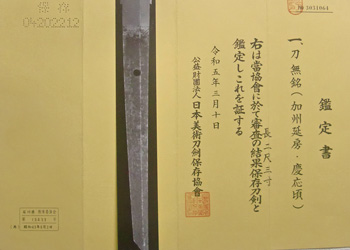 鑑定書
一、刀 無銘(加州延房・慶応頃)
長 二尺三寸
右は當協會に於て審査の結果保存刀剣と
鑑定しこれを証する
令和五年三月十日
公益財團法人日本美術刀剣保存協會
保存